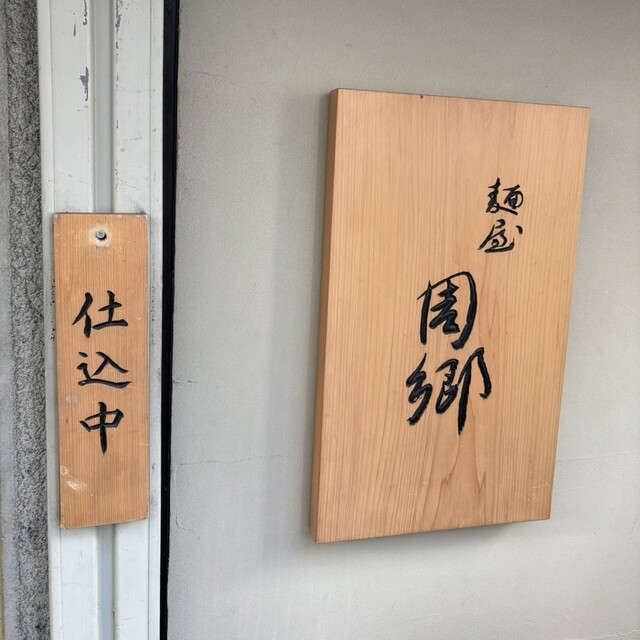 麺屋
周郷
仕込中